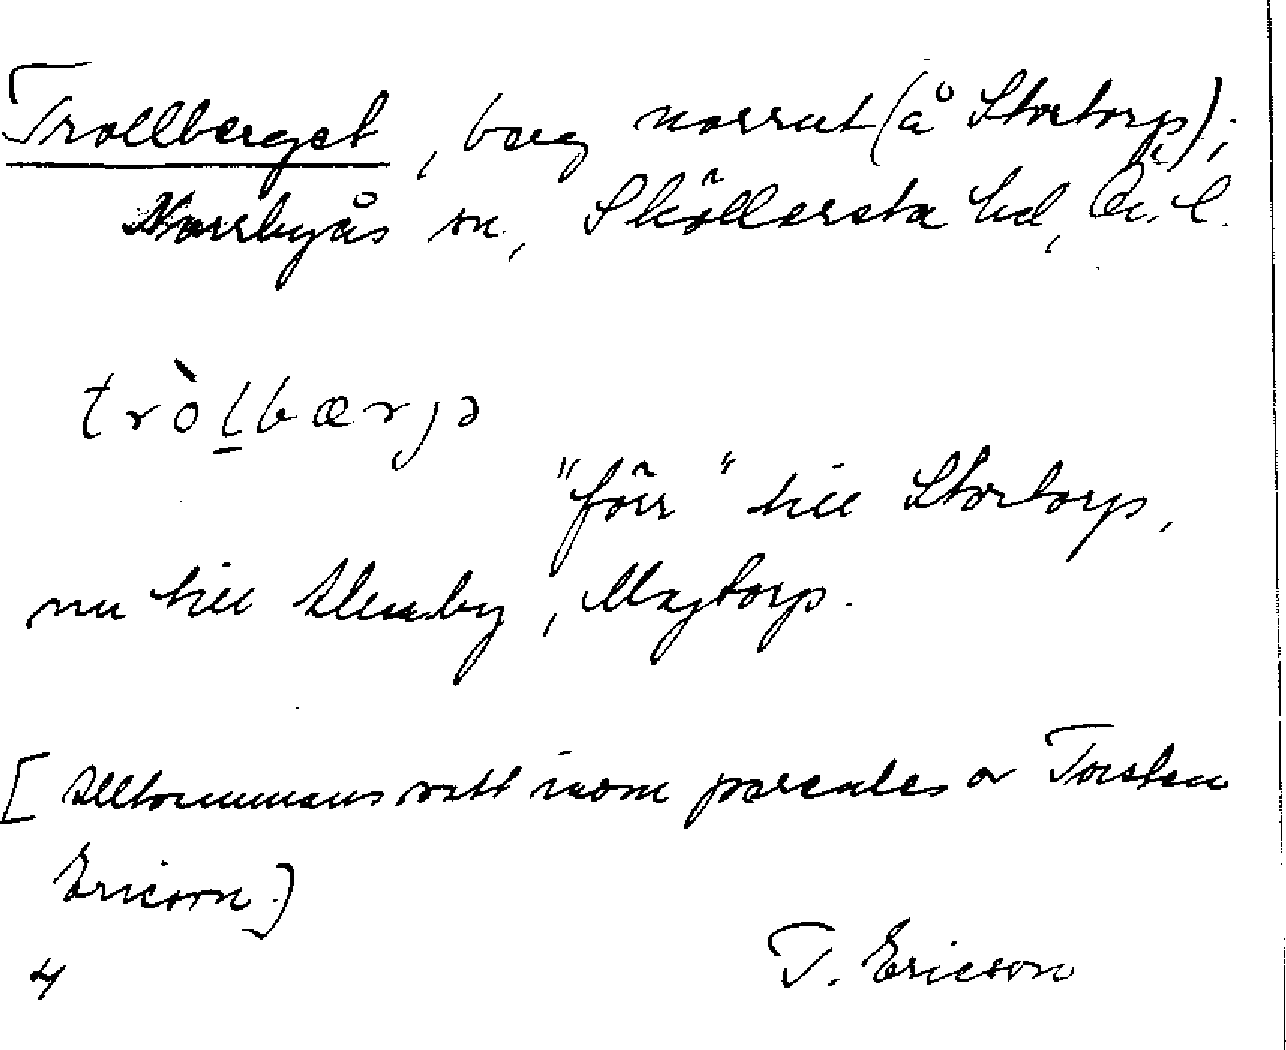 Trollberget, berg norrut (å Stortorp);
Norrbyås sn, Sköllersta hd, Ör. l.
tròl̲bærjə
"förr" till Stortorp,
nu till Älmby, Mogtorp.
[ vitt inom av Torsten
Ericson.]
4 T. Ericson